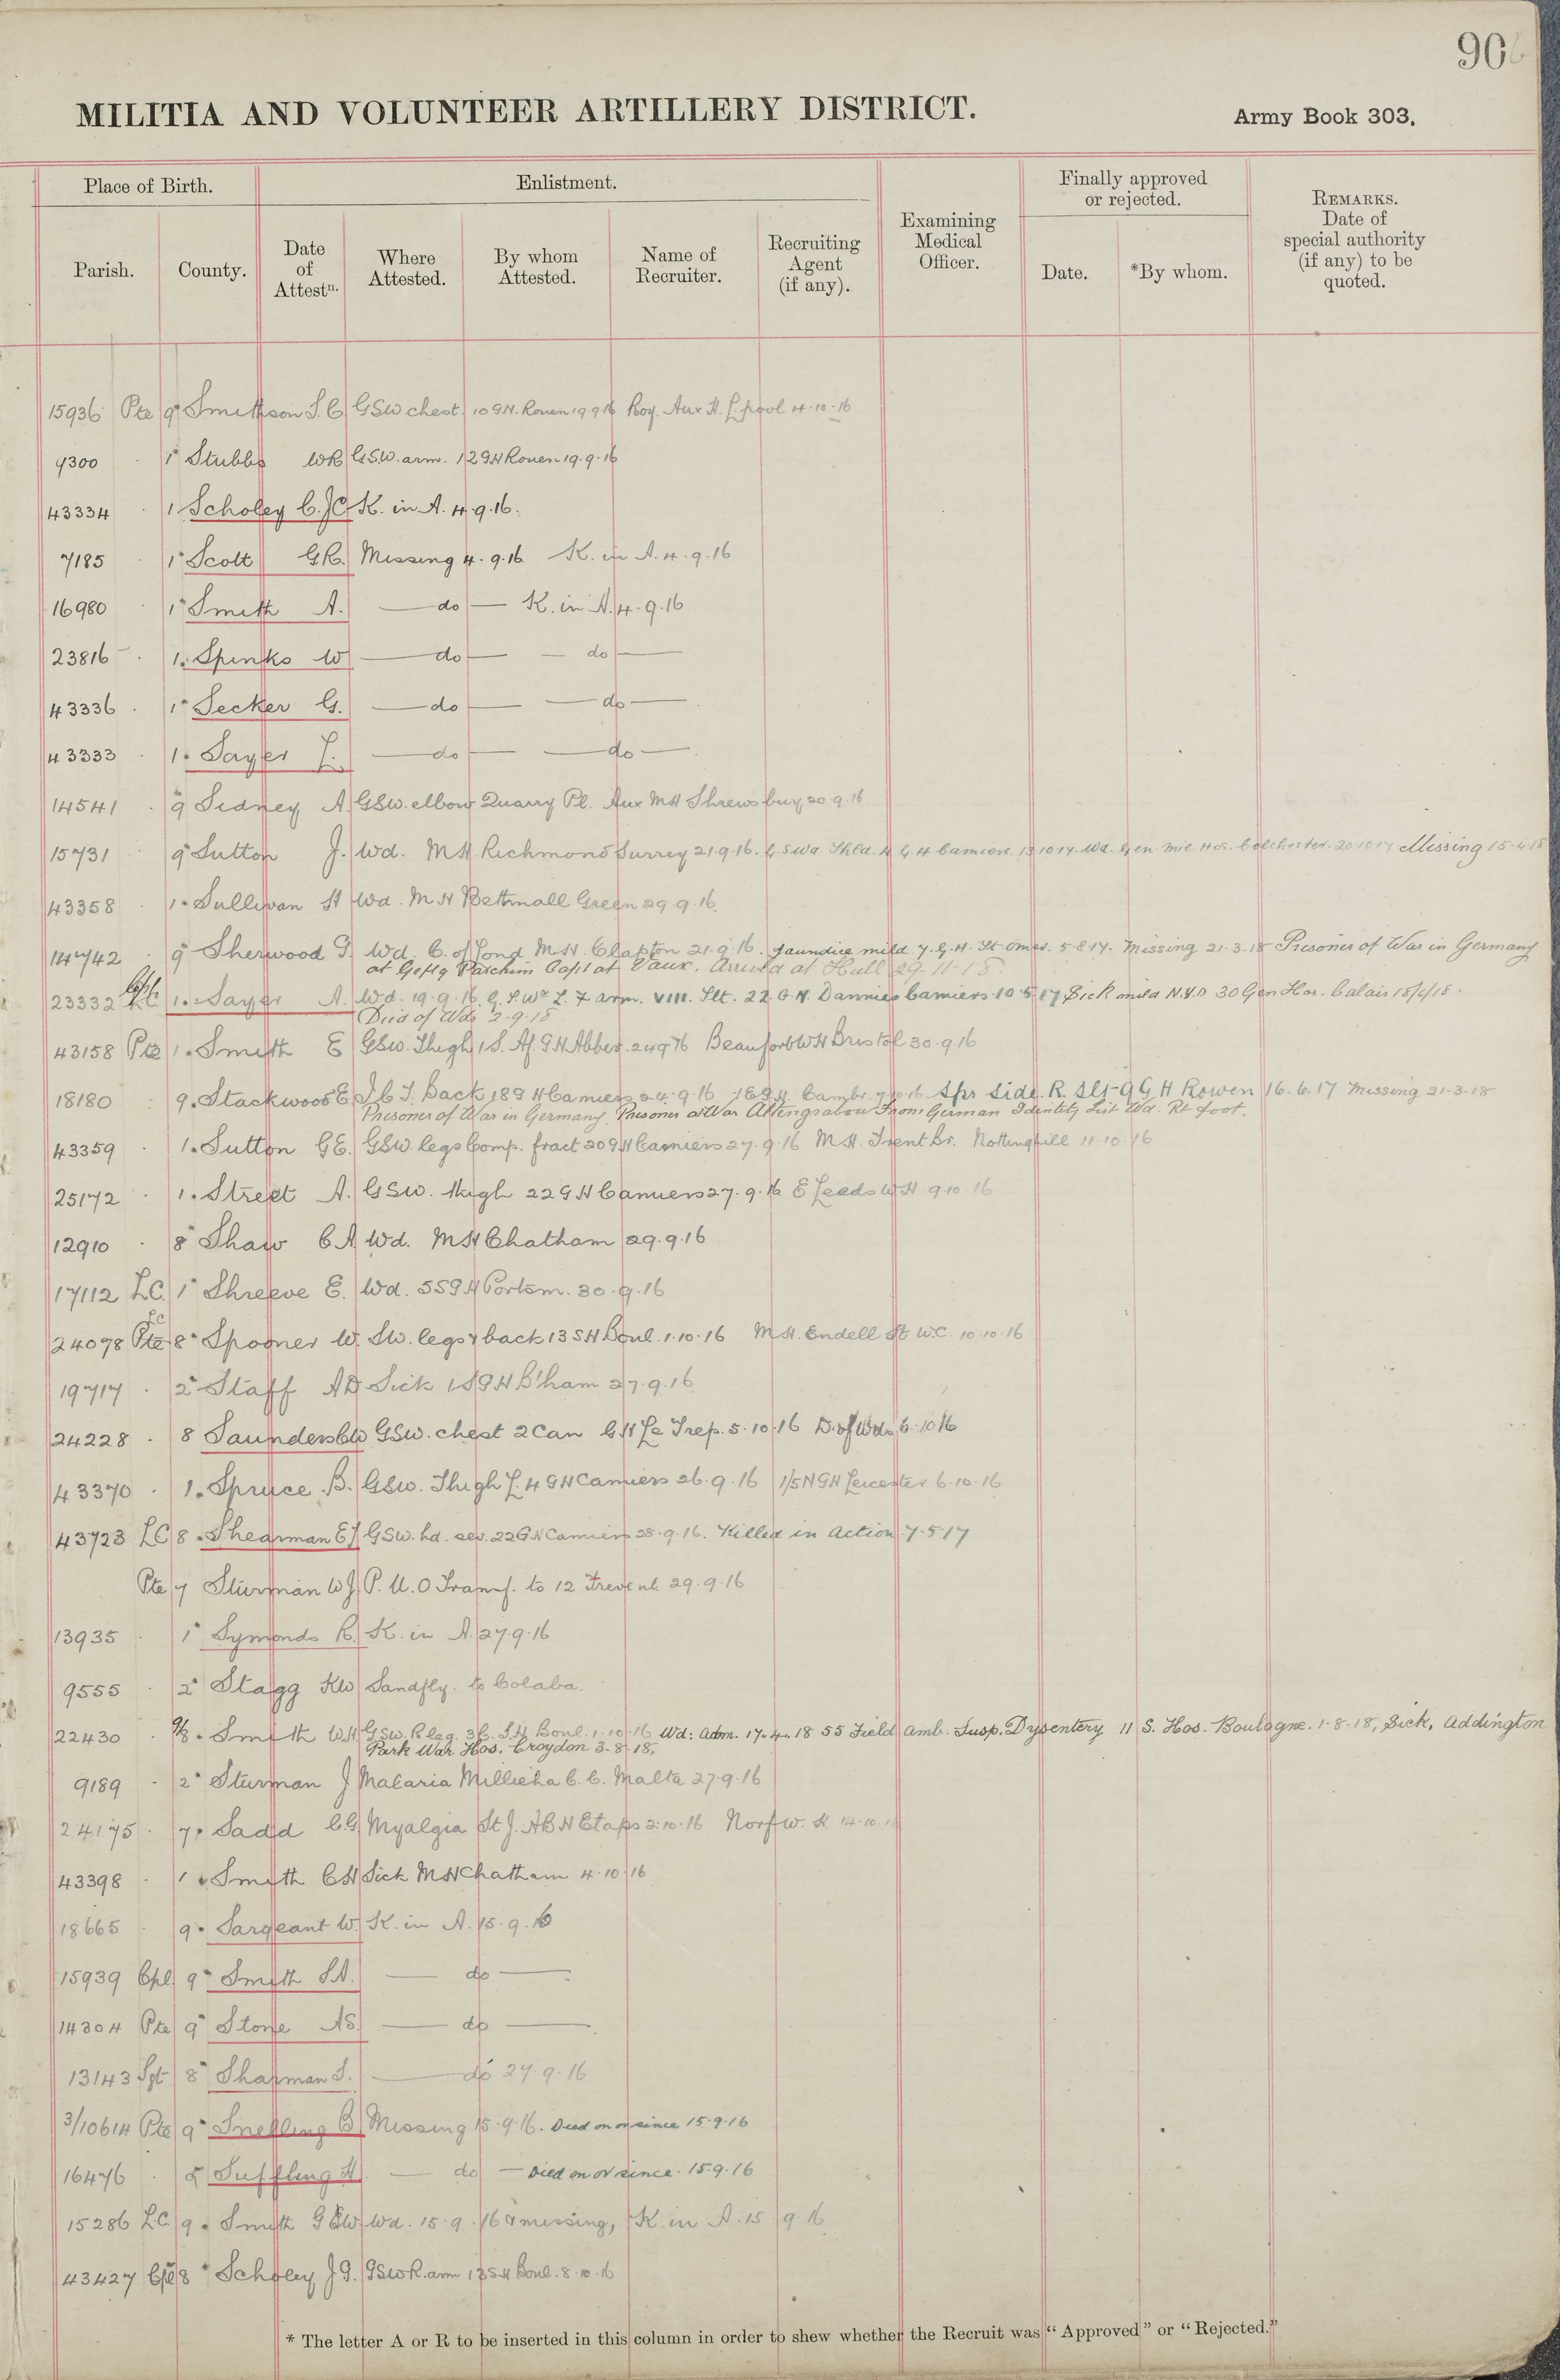 90
MILITIA AND VOLUNTEER ARTILLERY DISTRICT.
Army Book 303.
Place of Birth.
Enlistment.
Finally approved
or rejected.
Parish.
County.
Date
of
Attestn.
Where
Attested.
By whom
Attested.
Name of
Recruiter.
Recruiting
Agent
(if any).
Examining
Medical
Officer.
Date.
*By whom.
REMARKS.
Date of
special authority
(if any) to be
quoted.
15936 Pte 9 Smithson S.C GSW chest. 10 GH. Rouen 19.9.16 Roy. Aux H. L.pool 4.10.16
9300 1 Stubbs WR GSW. arm. 12 GH Rouen 19.9.16
43334 1 Scholey C.JC K. in A. 4.9.16.
7185 1 Scott GR. Missing 4.9.16 K. in A. 4.9.16
16980 1 Smith A. — do — K. in A. 4.9.16
23816 1. Spinks W — do — — do —
43336 1 Secker G. — do — — do —
43333 1. Sayer L. — do — — do —
14541 9 Sidney A GSW. elbow Quarry Pl. Aux MH Shrewsbury 20.9.16
15731 9 Sutton J. Wd. MH Richmond Surrey 21.9.16. Camiers 13.10.17. Wd. Gen. Mil. Hos. Colchester. 20.10.17 Missing 15.4.18
43358 1. Sullivan H Wd. MH Bethnall Green 29.9.16.
14742 9 Sherwood G. Wd. C. of Lond. MH. Clapton 21.9.16. Jaundice mild 7. G.H. St omer. 5.8.17. Missing 21.3.18 Prisoner of War in Germany
at Gefng Parchim Capt at Vaux. Arrived at Hull 29.11.18.
23332 Cpl 1. Sayer A. Wd. 19.9.16. G.S.W. L. F arm. VIII. Slt. 22. G.H. Dannies Camiers 10.5.17 Sick mild N.Y.D 30 Gen Hos. Calais 18/6/18.
Died of Wds 2.9.18
43158 Pte 1. Smith E GSW. Thigh 1 S. Af. GH Abbev. 24.9.16 Beaufort WH Bristol 30.9.16
18180 9. Stackwood E Back 18 GH Camiers 24.9.16 Spr Side. R. Slt- 9 G H Rouen 16.6.17 Missing 21-3-18
Prisoner of War in Germany. Prisoner of War Altengrabow From German Identity List Wd. Rt foot.
43359 1. Sutton GE. GSW. legs Comp. fract 20 GH Camiers 27.9.16 MH. Trent Br. Nottinghill 11.10.16
25172 1. Street A. GSW. thigh 22 GH Camiers 27.9.16 E Leeds WH. 9.10.16
12910 8 Shaw CA Wd. MH Chatham 29.9.16
17112 LC. 1 Shreeve E. Wd. 5SGH Portsm. 30.9.16
LC
24098 Pte 8 Spooner W. SW. legs & back 13 SH Boul. 1.10.16 MH. Endell St W.C. 10.10.16
19717 2 Staff AD Sick 1SGH B'ham 27.9.16
24228 8 Saunders GSW. chest 2 Can GH Le Trep. 5.10.16 D. of Wds 6.10.16
43370 1. Spruce B. GSW. Thigh L. 4 GH Camiers 26.9.16 1/5 NGH Leicester 6.10.16
43723 LC 8. Shearman EJ GSW. hd. sev. 22 GH Camiers 28.9.16. Killed in Action 7.5.17
Pte 7 Sturman WJ P.U.O Transf. to 12 Trevent 29.9.16
13935 1 Symonds R. K. in A. 27.9.16
9555 2 Stagg KW Sandfly. to Colaba.
22430 8. Smith WH GSW. R leg. 3 C. SH. Boul. 1.10.16 Wd: adm. 17.4.18 55 Field amb. Susp. Dysentery 11 S. Hos. Boulogne. 1.8.18, Sick, Addington
Park War Hos. Croydon 3-8-18.
9189 2 Sturman J Malaria Millieha C.C. Malta 27.9.16
24175 7. Sadd CG Myalgia St J. ABH Etaps 2.10.16 Norf W. H. 14.10.16
43398 1 Smith CH Sick MH Chatham 4.10.16
18665 9. Sargeant W. K. in A. 15.9.16
15939 Cpl 9 Smith SA. — do —
14304 Pte 9 Stone AS. — do —
13143 Sgt 8 Sharman S. — do 27.9.16
3/10614 Pte 9 Snelling B Missing 15.9.16. Died on or since 15.9.16
16476 Suffling H. — do — Died on or since. 15.9.16
15286 LC 9. Smith Wd. 15.9.16 & missing, K. in A. 15.9.16
43427 Cpl 8 Scholey J.G. GSW R. arm 13 SH Boul. 8.10.16
* The letter A or R to be inserted in this column in order to shew whether the Recruit was "Approved" or "Rejected."